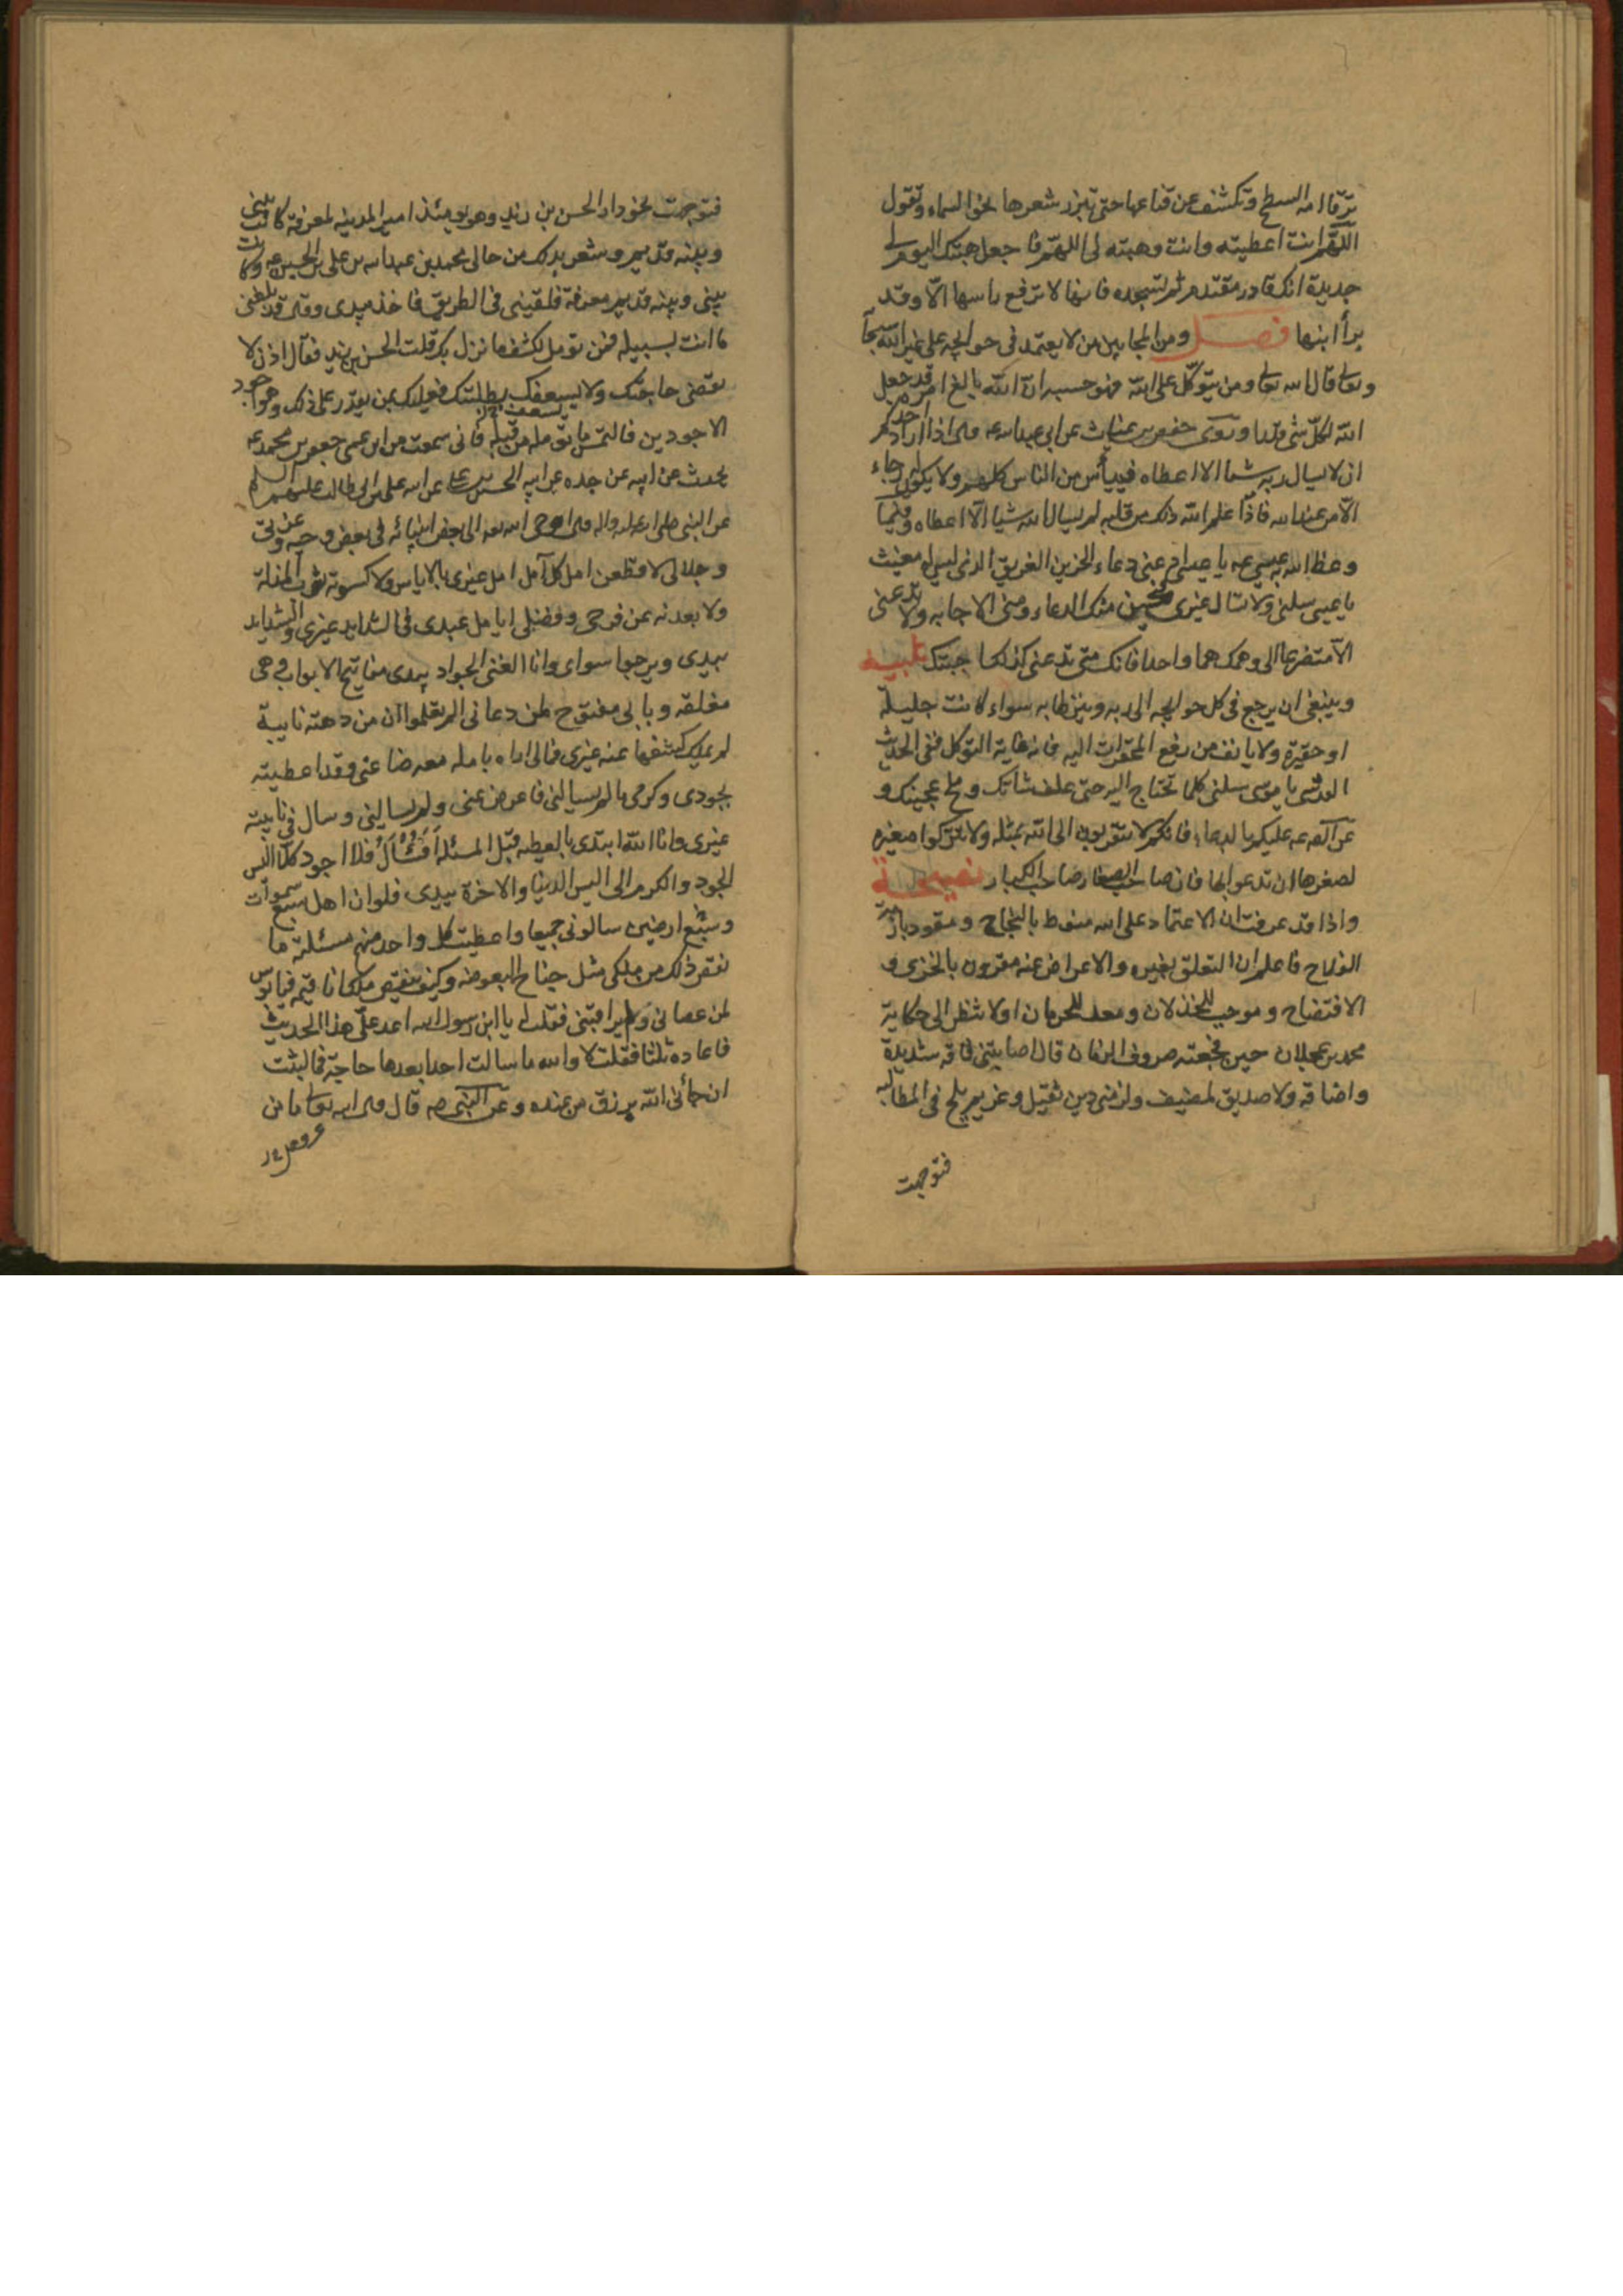 ترقا امه السطح وتكشف عن قناعها حتى تبرز شعرها نحو السماء وتقول
اللهم انت اعطيته وانت وهبته لى اللهم فاجعل هبتك اليوم لى
جديدة انك قادر مقتدر ثم تسجد فانها لا ترفع راسها الا وقد
برأ ابنها فصل ومن المجابين من لا يعتمد فى حوائجه على غير الله سبحانه
وتعالى قال الله تعالى ومن يتوكل على الله فهو حسبه ان الله بالغ امره قد جعل
الله لكل شئ قدرا وروى حفص بن غياث عن ابى عبد الله عه قال اذا اراد احدكم
ان لا يسال ربه شيئا الا اعطاه فييأس من الناس كلهم ولا يكون له رجاء
الا من عند الله فاذا علم الله ذلك من قلبه لم يسال الله شيئا الا اعطاه وفيما
وعظ الله به عيسى عه يا عيسى ادعنى دعاء الحزين الغريق الذى ليس له مغيث
يا عيسى سلنى ولا تسال غيرى فيحسن منك الدعاء ومنى الاجابه ولا تدعنى
الا متضرعا الى وهمك هما واحدا فانك متى تدعنى كذلك اجبتك تنبيه
وينبغى ان يرجع فى كل حوائجه الى ربه وينزلها به سواء كانت جليلة
او حقيرة ولا يانف من رفع المحقرات اليه فانه غاية التوكل ففى الحديث
القدسى يا موسى سلنى كلما تحتاج اليه حتى علف شاتك وملح عجينك و
عن الصه عه عليكم بالدعاء فانكم لا تتقربون الى الله بمثله ولا تتركوا صغيرة
لصغرها ان تدعوا بها فان صاحب الصغار صاحب الكبار نصيحة
واذا قد عرفت ان الاعتماد على الله منوط بالنجاح ومقود بازمة
الفلاح فاعلم ان التعلق بغيره والاعراض عنه مقرون بالخزى و
الافتضاح وموجب للخذلان ومعد للحرمان اولا تنظر الى حكاية
محمد بن عجلان حين فجعته صروف الزمان قال اصابتنى فاقه شديدة
واضاقه ولا صديق لمضيف ولزمنى دين ثقيل وغريم يلح فى المطالبه
فتوجهت
فتوجهت نحو دار الحسن بن زيد وهو يومئذ امير المدينه لمعرفة كانت بينى
وبينه قديم وشعر بذلك من حالى محمد بن عبد الله بن على بن الحسين عه وكانت
بينى وبينه قديم معرفة فلقينى فى الطريق فاخذ بيدى وقال قد بلغنى
ما انت بسبيله فمن تومل لكشف ما نزل بك قلت الحسن بن زيد فقال اذن لا
تقضى حاجتك ولا يسعفك بطلبتك فعليك بمن يقدر على ذلك وهو اجود
الاجودين فالتمس ما تومله من قبله فانى سمعت من ابن عمى جعفر بن محمد عه
يحدث عن ابيه عن جده عن ابيه الحسين بن على عن ابيه على بن ابى طالب عليهم السلام
عن النبى صلى الله عليه واله قال اوحى الله الى بعض انبيائه فى بعض وحيه وعزتى
وجلالى لاقطعن امل كل آمل امل غيرى بالاياس ولاكسونه ثوب المذلة
ولابعدنه من فرجى وفضلى ايامل عبدى فى الشدايد غيرى والشدايد
بيدى ويرجوا سواى وانا الغنى الجواد بيدى مفاتيح الابواب وهى
مغلقه وبابى مفتوح لمن دعانى الم تعلموا ان من دهته نايبة
لم يملك كشفها عنه غيرى فمالى اراه يامله معرضا عنى وقد اعطيته
بجودى وكرمى ما لم يسالنى فاعرض عنى ولم يسالنى وسال فى نايبته
غيرى وانا الله ابتدى بالعطيه قبل المسئلة أفأُسأل فلا اجود كلا اليس
الجود والكرم الى اليس الدنيا والاخرة بيدى فلو ان اهل سبع سموات
وسبع ارضين سالونى جميعا واعطيت كل واحد منهم مسئلته ما
نقص ذلك من ملكى مثل جناح البعوضه وكيف ينقص ملك انا قيمه فيا بوس
لمن عصانى ولم يراقبنى فقلت له يا ابن رسول الله اعد على هذا الحديث
فاعاده ثلثا فقلت لا والله ما سالت احدا بعدها حاجة فما لبثت
ان جائنى الله برزق من عنده وعن النبى صه قال قال الله تعالى ما من